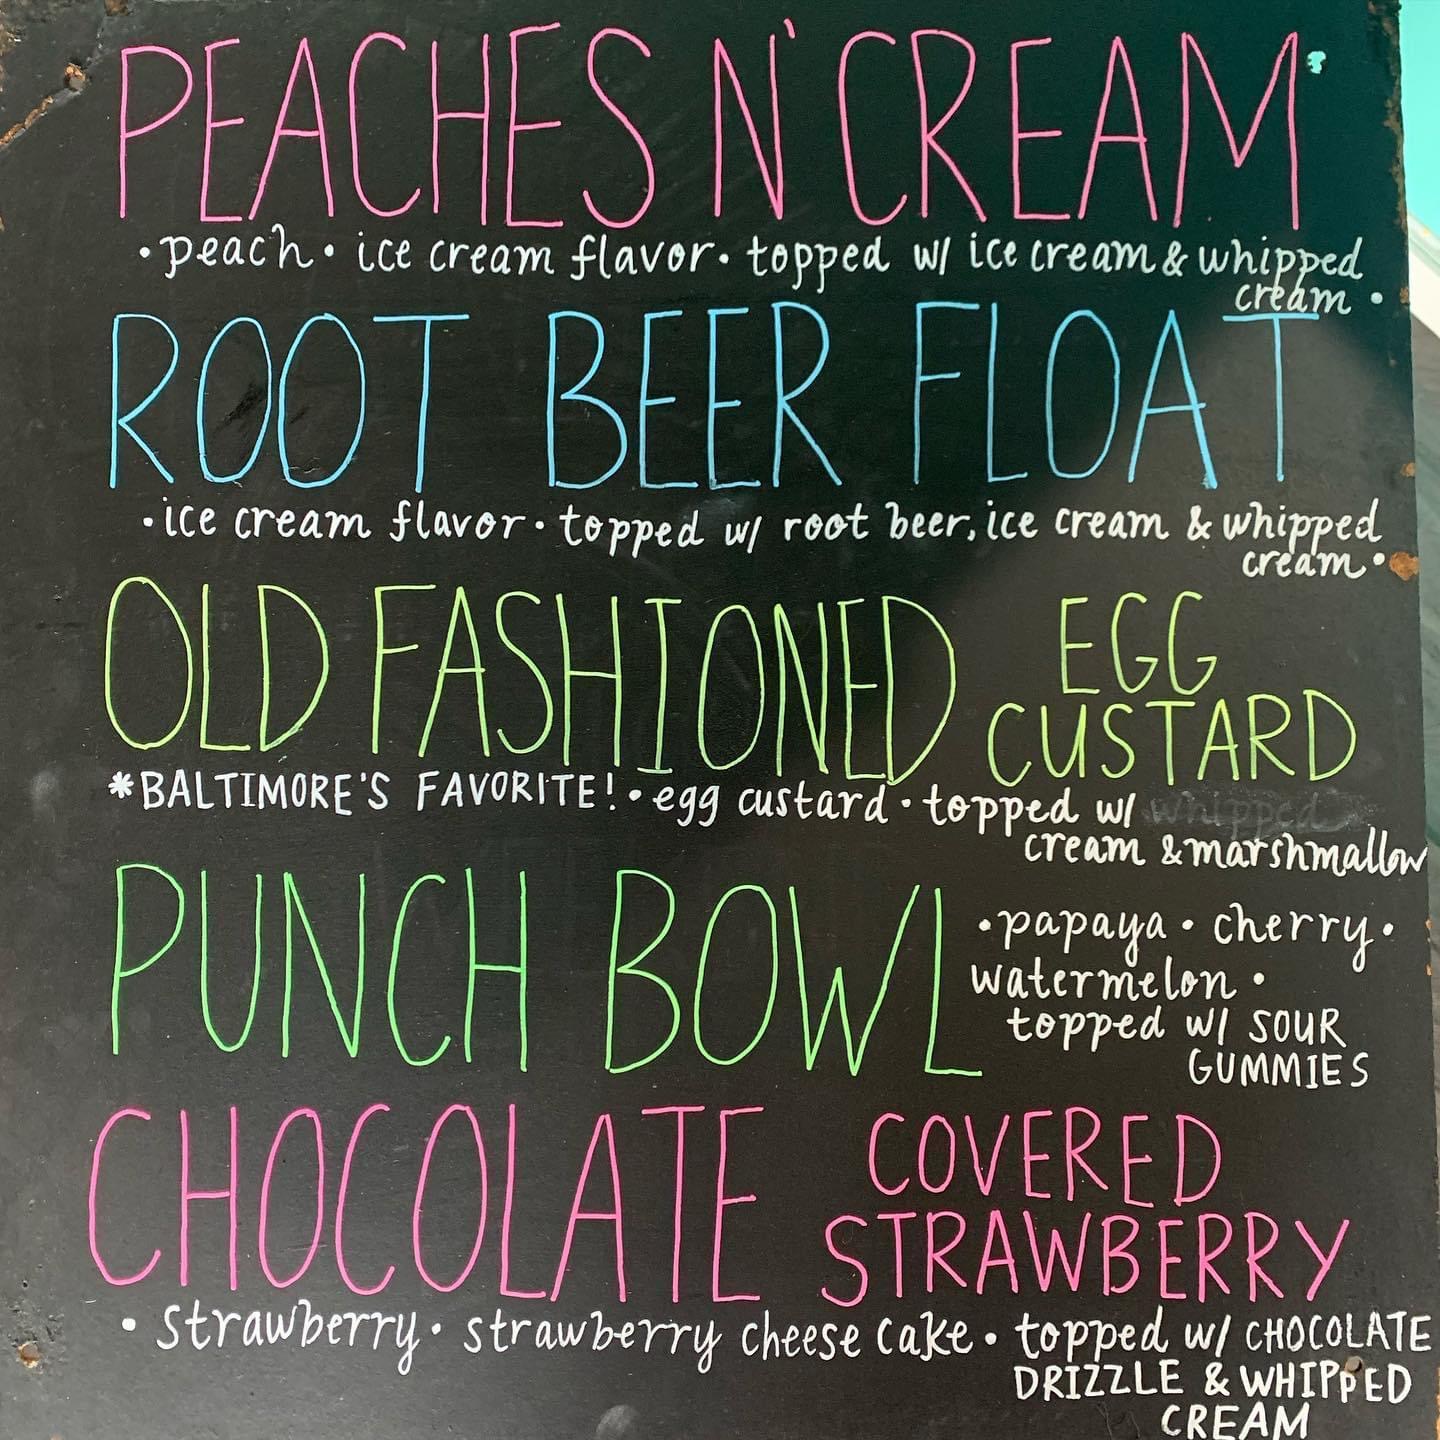 PEACHES N' CREAM
•peach• ice cream flavor• topped w/ ice cream & whipped
cream •
ROOT BEER FLOAT
•ice cream flavor• topped w/ root beer, ice cream & whipped
cream•
OLD FASHIONED EGG
CUSTARD
*BALTIMORE'S FAVORITE! • egg custard • topped w/ whipped
cream & marshmallow
PUNCH BOWL
•papaya • cherry•
watermelon •
topped w/ SOUR
GUMMIES
CHOCOLATE COVERED
STRAWBERRY
• strawberry• strawberry cheese cake• topped w/ CHOCOLATE
DRIZZLE & WHIPPED
CREAM